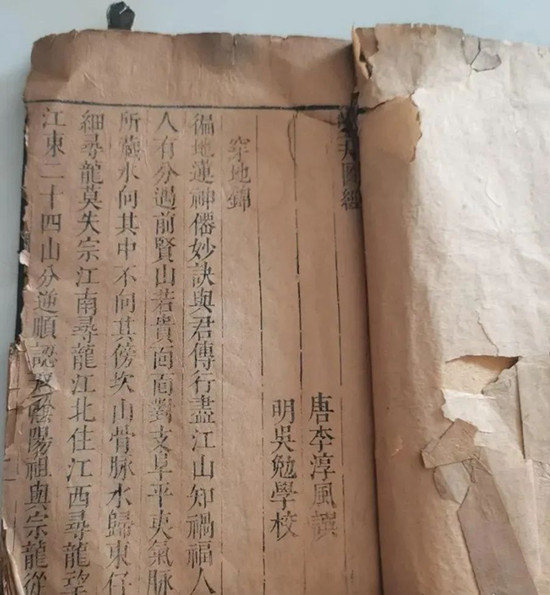 天圖經
唐李淳風譔
明吳勉學校
穿地錦
徧地蓮神僊妙訣與君傳行盡江山知禍福人
人有分遇前賢山若貴面面對支阜平夷氣脈
所藏水向其中不向其傍坎山骨脈水歸東仔
細尋龍莫失宗江南尋龍江北住江西尋龍望
江東二十四山分逆順認取陰陽祖與宗龍從